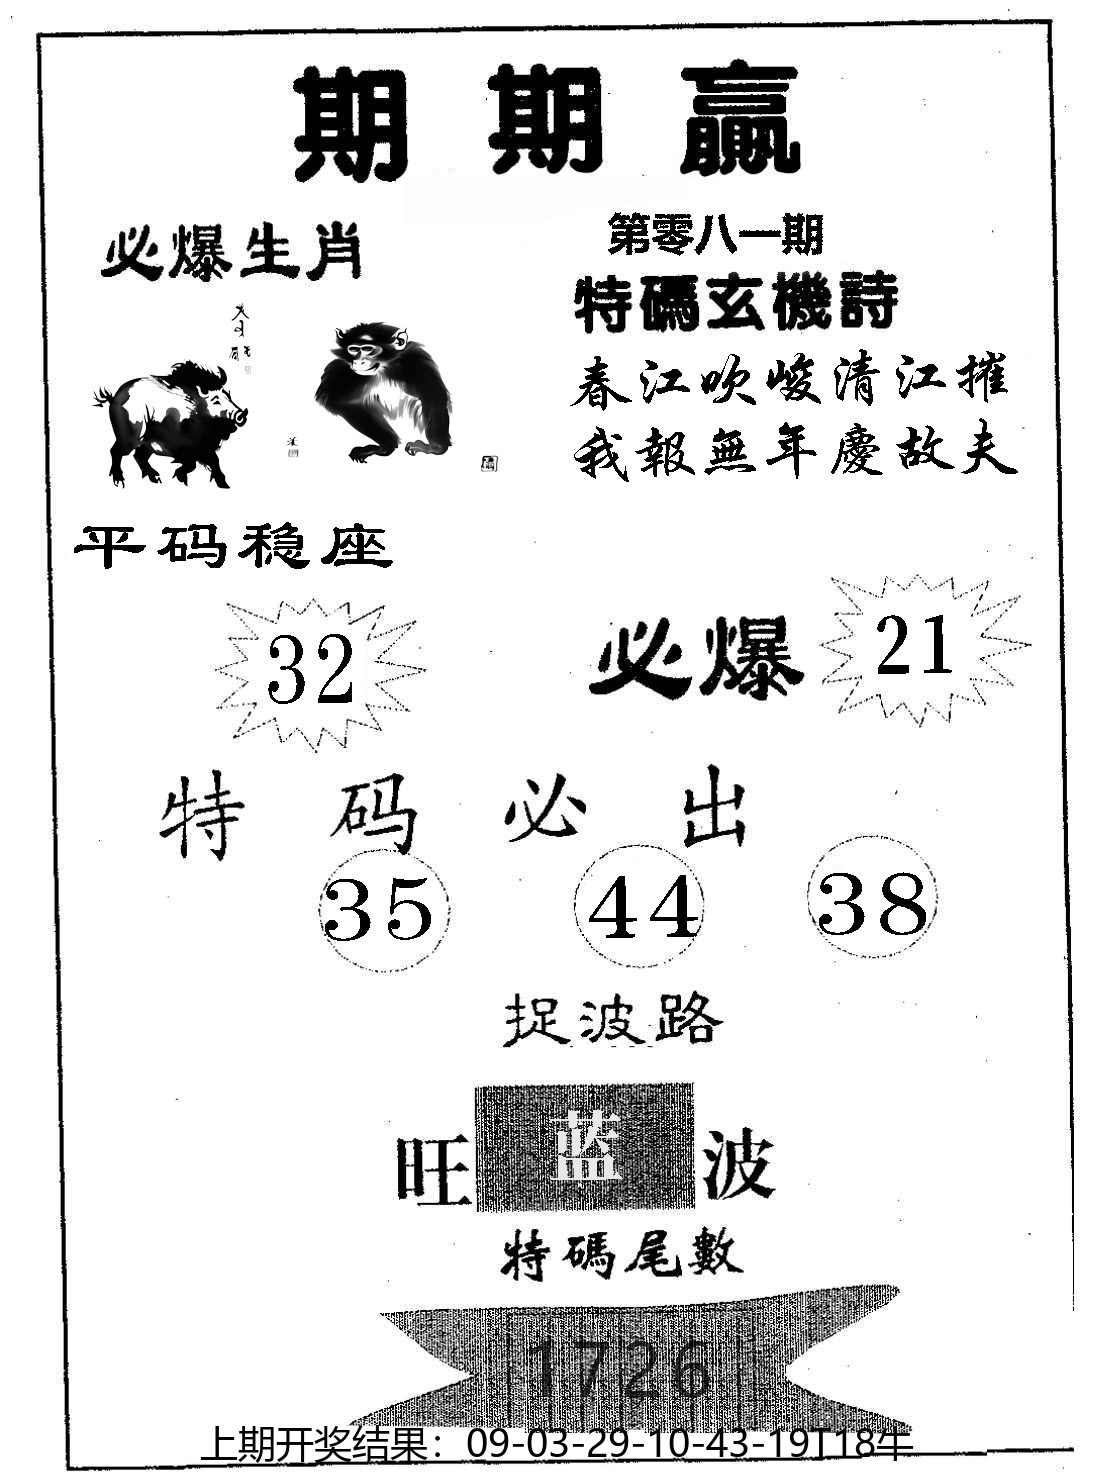 期期贏
必爆生肖
第零八一期
特碼玄機詩
春江吹峻清江摧
我報無年慶故夫
平码稳座
32
必爆 21
特码必出
35 44 38
捉波路
旺 蓝 波
特碼尾數
1726
上期开奖结果：09-03-29-10-43-19T18牛